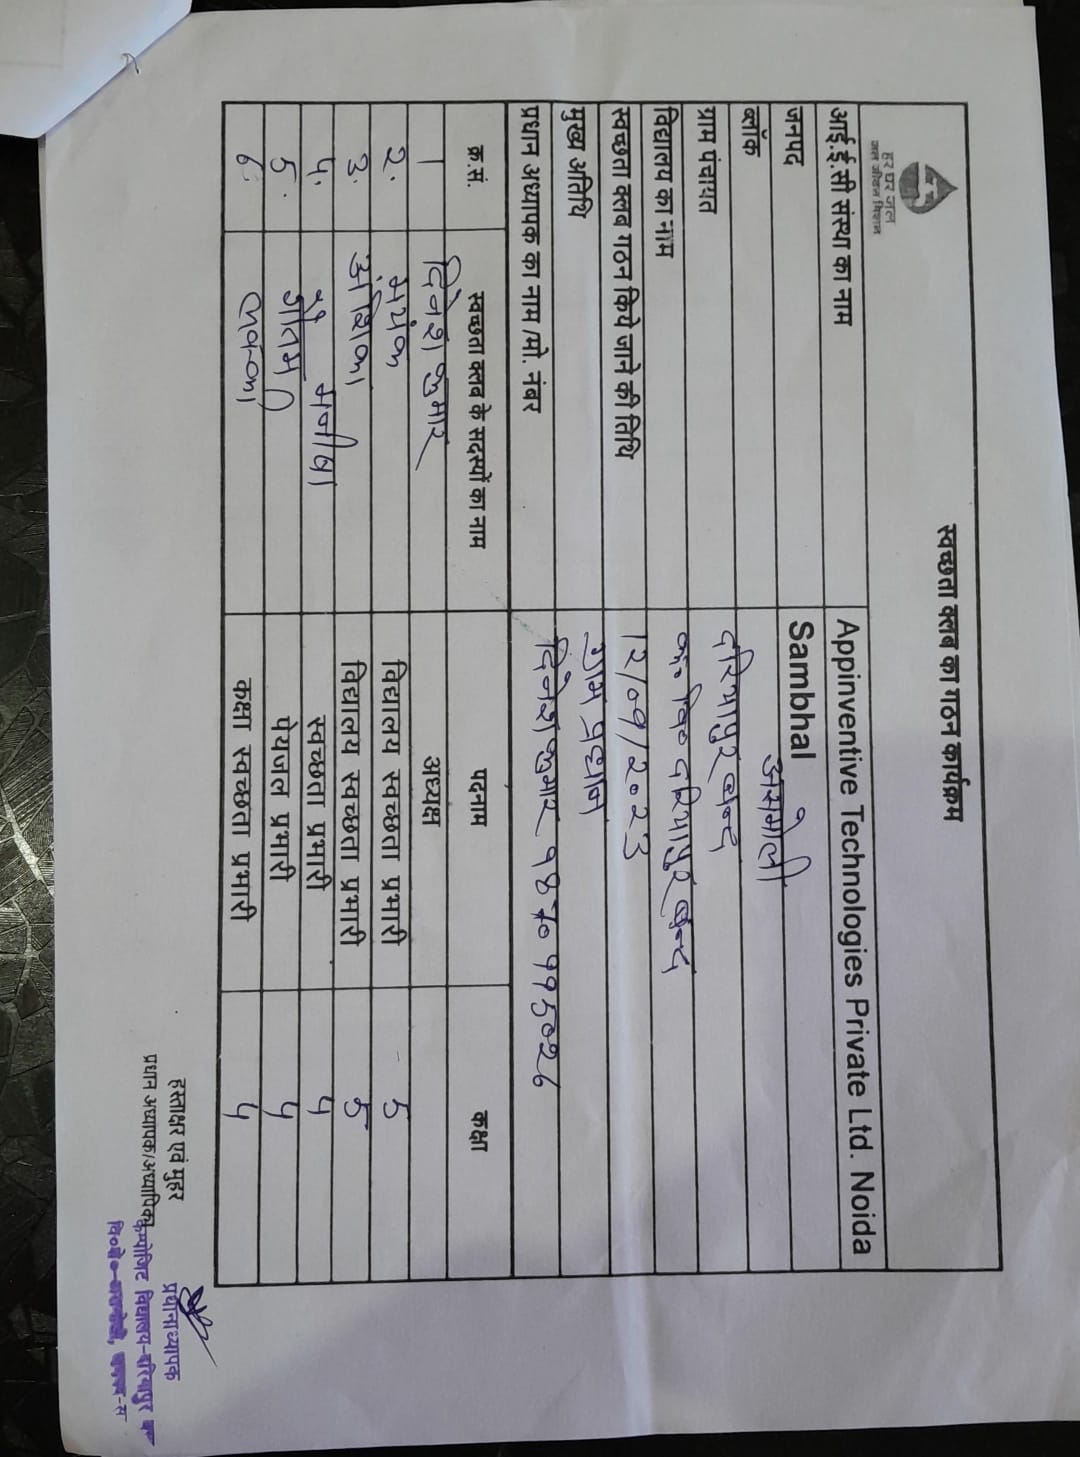 स्वच्छता क्लब का गठन कार्यक्रम
हर घर जल
जल जीवन मिशन
आई.ई.सी संस्था का नाम Appinventive Technologies Private Ltd. Noida
जनपद Sambhal
ब्लॉक असमोली
ग्राम पंचायत दरियापुर
विद्यालय का नाम क० वि० दरियापुर
स्वच्छता क्लब गठन किये जाने की तिथि 12/09/2023
मुख्य अतिथि ग्राम प्रधान
प्रधान अध्यापक का नाम /मो. नंबर दिनेश कुमार
क्र.सं. स्वच्छता क्लब के सदस्यों का नाम पदनाम कक्षा
1 दिनेश कुमार अध्यक्ष
2. मयंक विद्यालय स्वच्छता प्रभारी 5
3. अंशिका विद्यालय स्वच्छता प्रभारी 5
४. मनीषा स्वच्छता प्रभारी ५
5. गौतम पेयजल प्रभारी ५
6. कक्षा स्वच्छता प्रभारी ५
हस्ताक्षर एवं मुहर
प्रधान अध्यापक/अध्यापिका
प्रधानाध्यापक
कम्पोजिट विद्यालय-दरियापुर